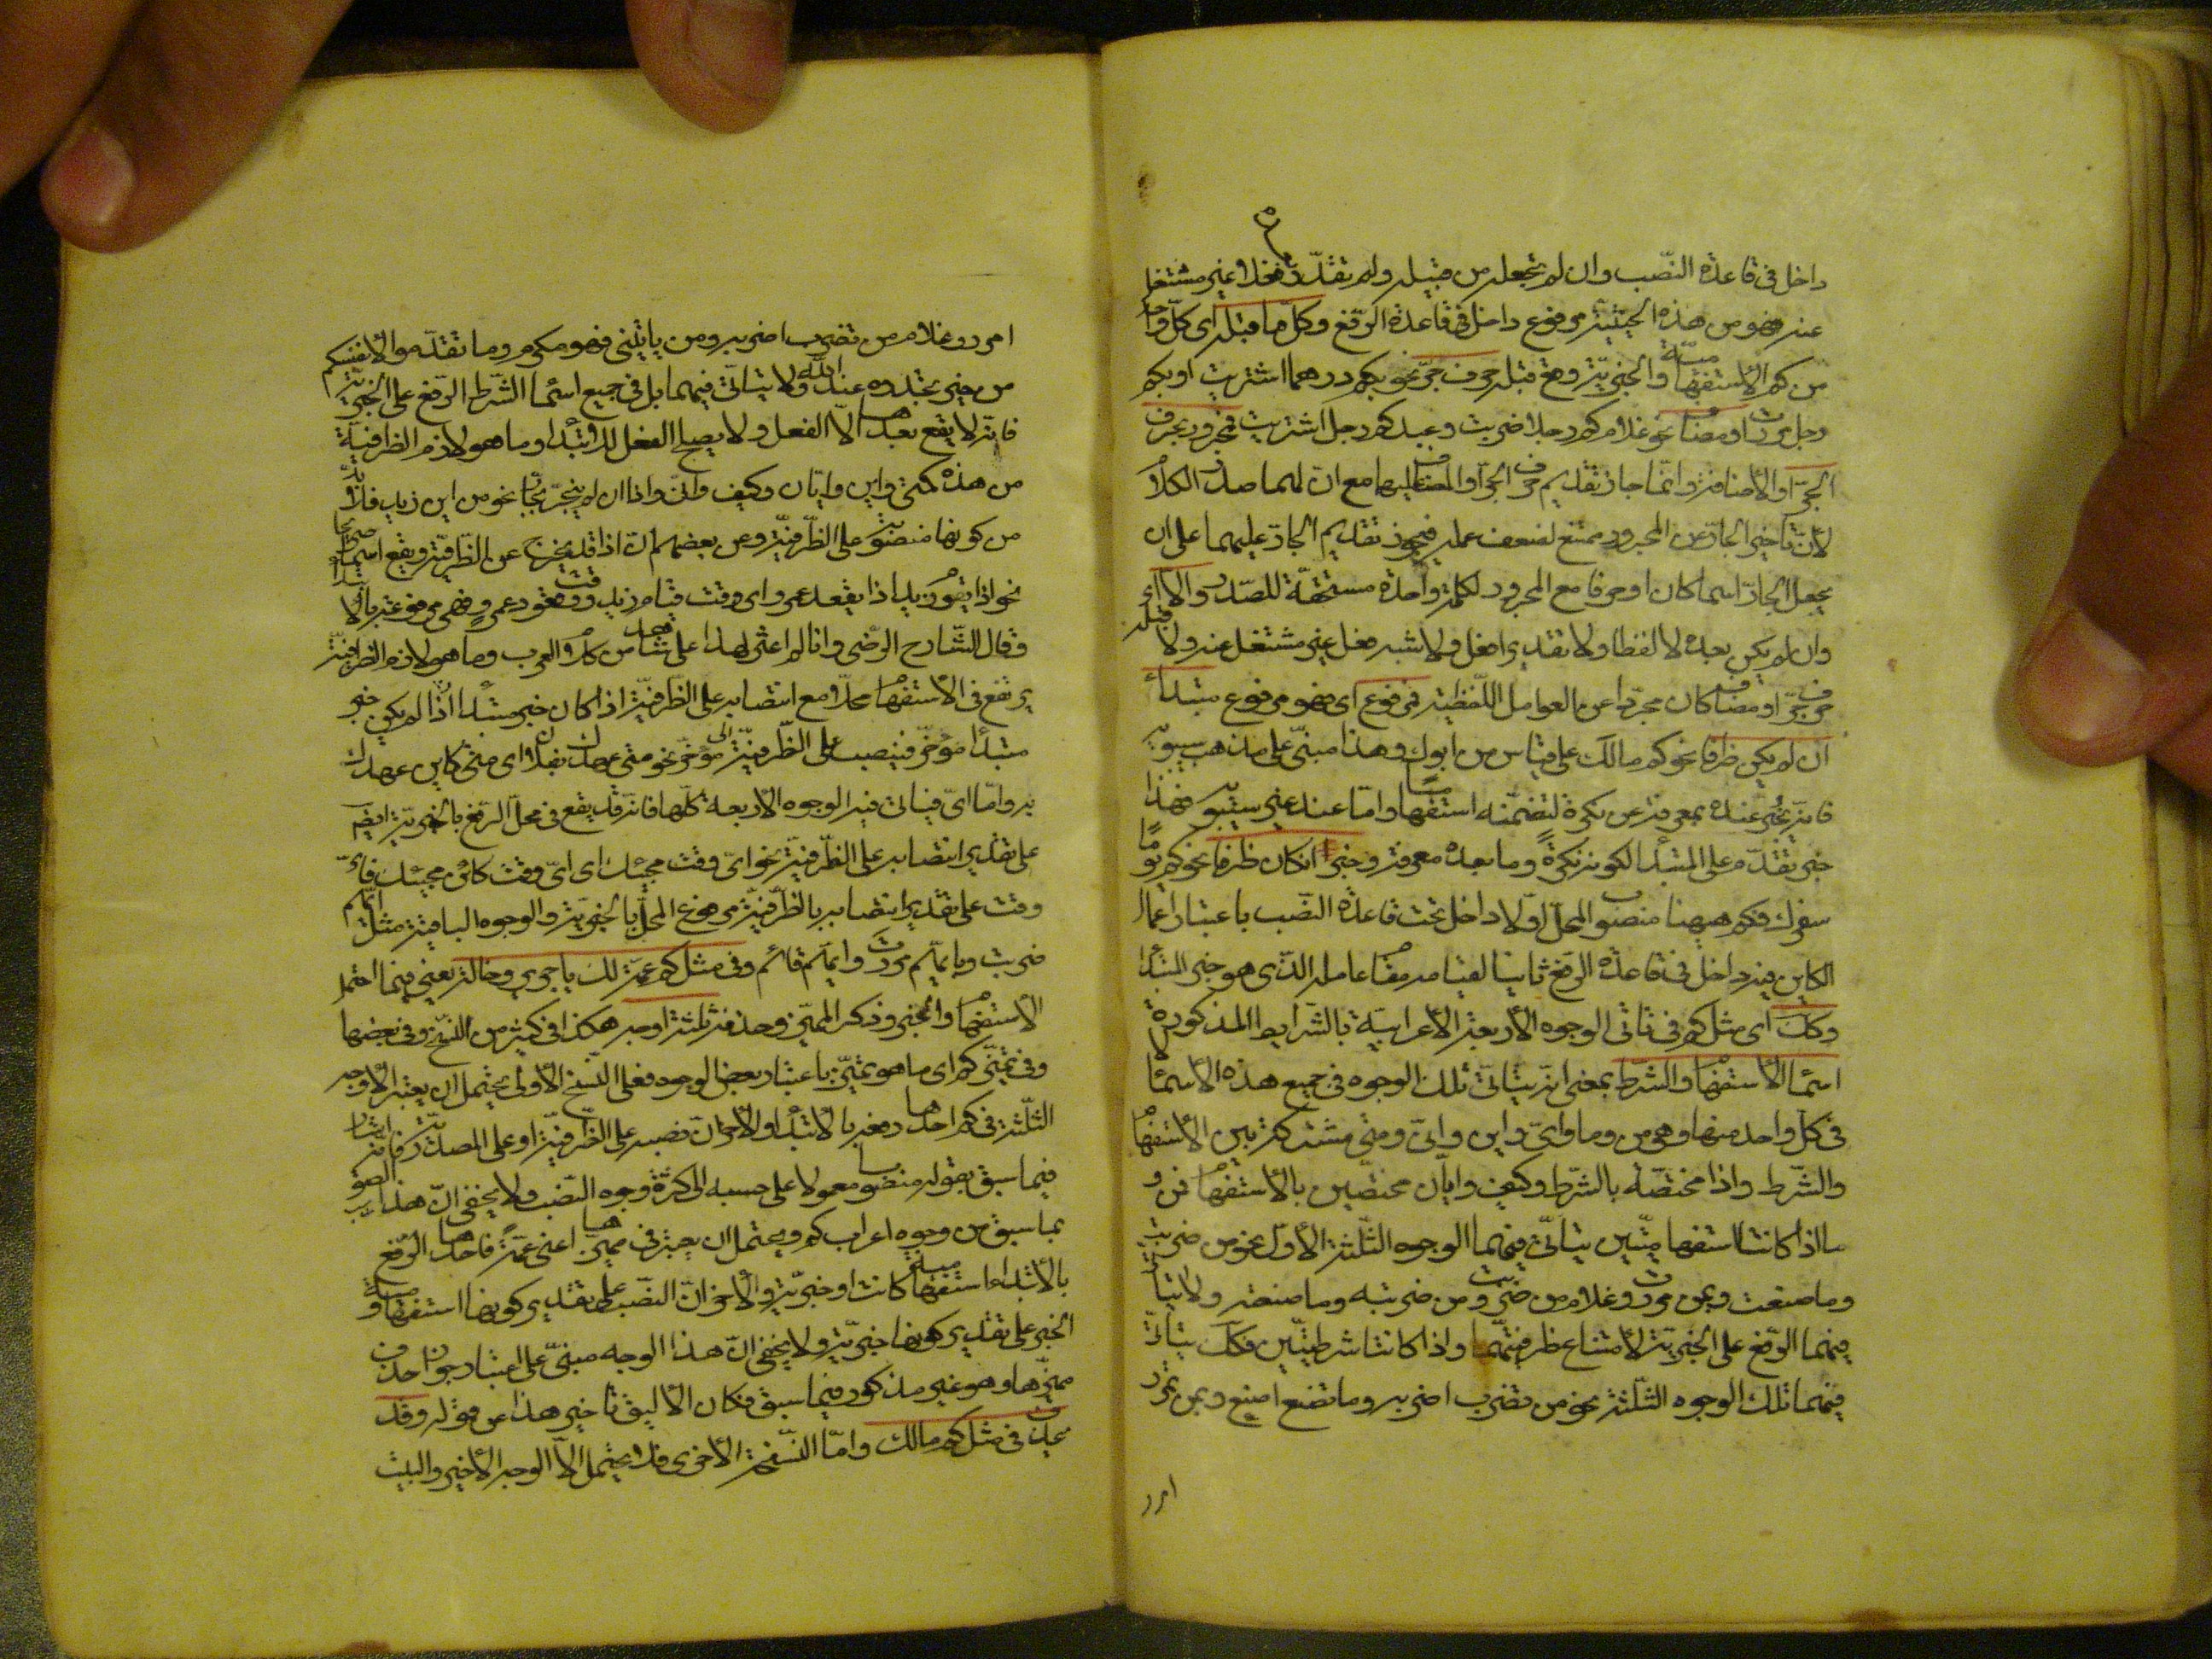 داخل فى قاعدة النّصب وان لم تجعله من قبيله ولم تقدّر فعلا غير مشتغل
عنه فهو من هذه الحيثيّة مرفوع داخل فى قاعدة الرّفع وكلّ ما قبله اى كلّ واحد
من كم الاستفهاميّة والخبريّة وقع قبله حرف جرّ نحو بكم درهما اشتريت او بكم
رجل مررت او مضاف نحو غلام كم رجلا ضربت وعبد كم رجل اشتريت فمجرور بحرف
الجرّ او الاضافة وانّما جاز تقديم حرف الجرّ او المضاف اليهما مع انّ لهما صدر الكلام
لانّ تأخير الجارّ عن المجرور ممتنع لضعف عمله فيجوز تقديم الجارّ عليهما على ان
يجعل الجارّ اسما كان او حرفا مع المجرور لكلمة واحدة مستحقّة للصّدر والاّ اى
وان لم يكن بعده لا لفظا ولا تقديرا فعل ولا شبه فعل غير مشتغل عنه ولا قبله
حرف جرّ او مضاف كان مجرّدا عن العوامل اللّفظية فمرفوع اى فهو مرفوع مبتدأ
ان لم يكن ظرفا نحو كم مالك على قياس من ابوك وهذا مبنىّ على مذهب سيبويه
فانّه يخبر عنده بمعرفة عن نكرة لتضمّنه استفهاما وامّا عند غير سيبويه فهذا
خبر تقدّم على المبتدأ لكونه نكرة وما بعده معرفة وخبر ان كان ظرفا نحو كم يوما
سفرك فكم ههنا منصوب المحلّ اوّلا داخل تحت قاعدة النّصب باعتبار اعمال
الكاين فيه داخل فى قاعدة الرفع ثانيا لقيامه مقام عامله الذّى هو خبر المبتدأ
وكذلك اى مثل كم فى تأتى الوجوه الاربعة الاعرابيّة بالشّرايط المذكورة
اسماء الاستفهام والشّرط بمعنى انّه يتأتّى تلك الوجوه فى جميع هذه الاسماء لا
فى كلّ واحد منها وهى من وما واىّ واين وانىّ ومتى مشتركة بين الاستفهام
والشّرط واذا مختصّة بالشّرط وكيف وايّان مختصّين بالاستفهام فمن و
ما اذا كانتا استفهاميّتين يتأتّى فيهما الوجوه الثّلثة الاول نحو من ضربت
وما صنعت وبمن مررت وغلام من ضربت ومن ضربته وما صنعته ولا يتأتّى
فيهما الرّفع على الخبريّة لامتناع ظرفيّتهما واذا كانتا شرطيّتين فكذلك يتأتّى
فيهما تلك الوجوه الثّلثة نحو من تضرب اضربه وما تصنع اصنع وبمن تمرر
امرر
امرر وغلام من تضرب اضربه ومن يأتينى فهو مكرم وما تقدّموا لانفسكم
من خير تجدوه عند الله ولا يتأتّى فيهما بل فى جميع اسماء الشّرط الرّفع على الخبريّة
فانّه لا يقع بعدها الاّ الفعل ولا يصلح الفعل للابتداء وما هو لازم الظرفيّة
من هذه كمتى واين وايّان وكيف وانّى واذا ان لم ينجرّ بجارّ نحو من اين زيد فلا بدّ
من كونها منصوبة على الظّرفيّة وعن بعضهم انّ اذا قد يخرج عن الظّرفيّة ويقع اسما صريحا
نحو اذا يقوم زيد اذا يقعد عمرو اى وقت قيام زيد وقت قعود عمرو فهى مرفوعة بالابتداء
وقال الشّارح الرّضى وانا لم اعثر لهذا على شاهد من كلام العرب وما هو لازم الظرفيّة
يرتفع فى الاستفهام محلاّ مع انتصابه على الظّرفيّة اذا كان خبر مبتدأ اذا لم يكن خبر
مبتدأ مؤخّر فينصب على الظّرفيّة مؤخّر نحو متى عهدك بفلان اى متى كاين عهدك
به وامّا اىّ فيتأتى فيه الوجوه الاربعة كلّها فانّه قد يقع فى محلّ الرّفع بالخبريّة ايضا
على تقدير انتصابه على الظّرفيّة نحو اىّ وقت مجيئك اى اىّ وقت كائن مجيئك فاىّ
وقت على تقدير انتصابه بالظّرفيّة مرفوع المحلّ بالخبريّة والوجوه الباقية مثل ايّهم
ضربت وبايّهم مررت وايّهم قائم وفى مثل كم عمّة لك يا جرير وخالة يعنى فيما احتمل
الاستفهام والخبر وذكر المميّز وحذفه ثلثة اوجه هكذا فى كثير من النّسخ وفى بعضها
وفى تميّز كم اى ما هو تميّز باعتبار بعض الوجوه فعلى النّسخ الاولى يحتمل ان يعتبر الاوجه
الثّلثة فى كم احدها رفعه بالابتداء والاخران نصبه على الظّرفيّة او على المصدريّة فانّه اشار
فيما سبق بقوله منصوبا معمولا على حسبه الى كثرة وجوه النّصب ولا يخفى انّ هذا الصق
بما سبق من وجوه اعراب كم ويحتمل ان يعتبر فى مميّزها اعنى عمّة فاحدها الرّفع
بالابتداء استفهاميّة كانت او خبريّة والاخران النّصب على تقدير كونها استفهاميّة و
الجرّ على تقدير كونها خبريّة ولا يخفى انّ هذا الوجه مبنىّ على اعتبار جواز حذف
مميّزها وهو غير مذكور فيما سبق فكان الاليق تأخير هذا عن قوله وقد
يحذف فى مثل كم مالك وامّا النّسخة الاخرى فلا يحتمل الاّ الوجه الاخير والبيت